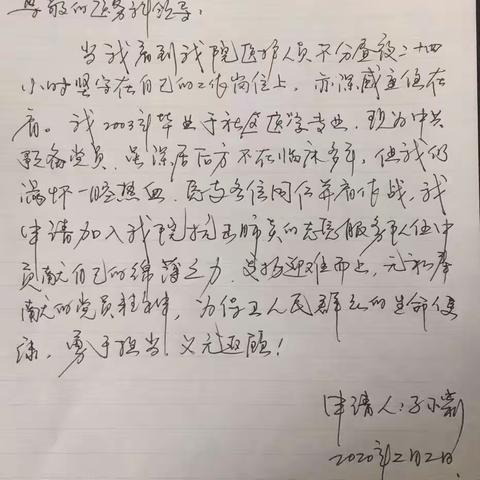 尊敬的医务科领导:
当我看到我院医护人员不分昼夜二十四
小时坚守在自己的工作岗位上,亦深感重任在
肩。我2003年毕业于社区医学专业,现为中共
预备党员,虽深居后方不在临床多年,但我仍
满怀一腔热血,愿与各位同仁并肩作战,我
申请加入我院抗击肺炎的志愿服务队伍中
贡献自己的绵薄之力,发扬迎难而上,无私奉
献的党员精神,为保卫人民群众的生命健
康,勇于担当,义无返顾!
申请人:
2020年2月2日